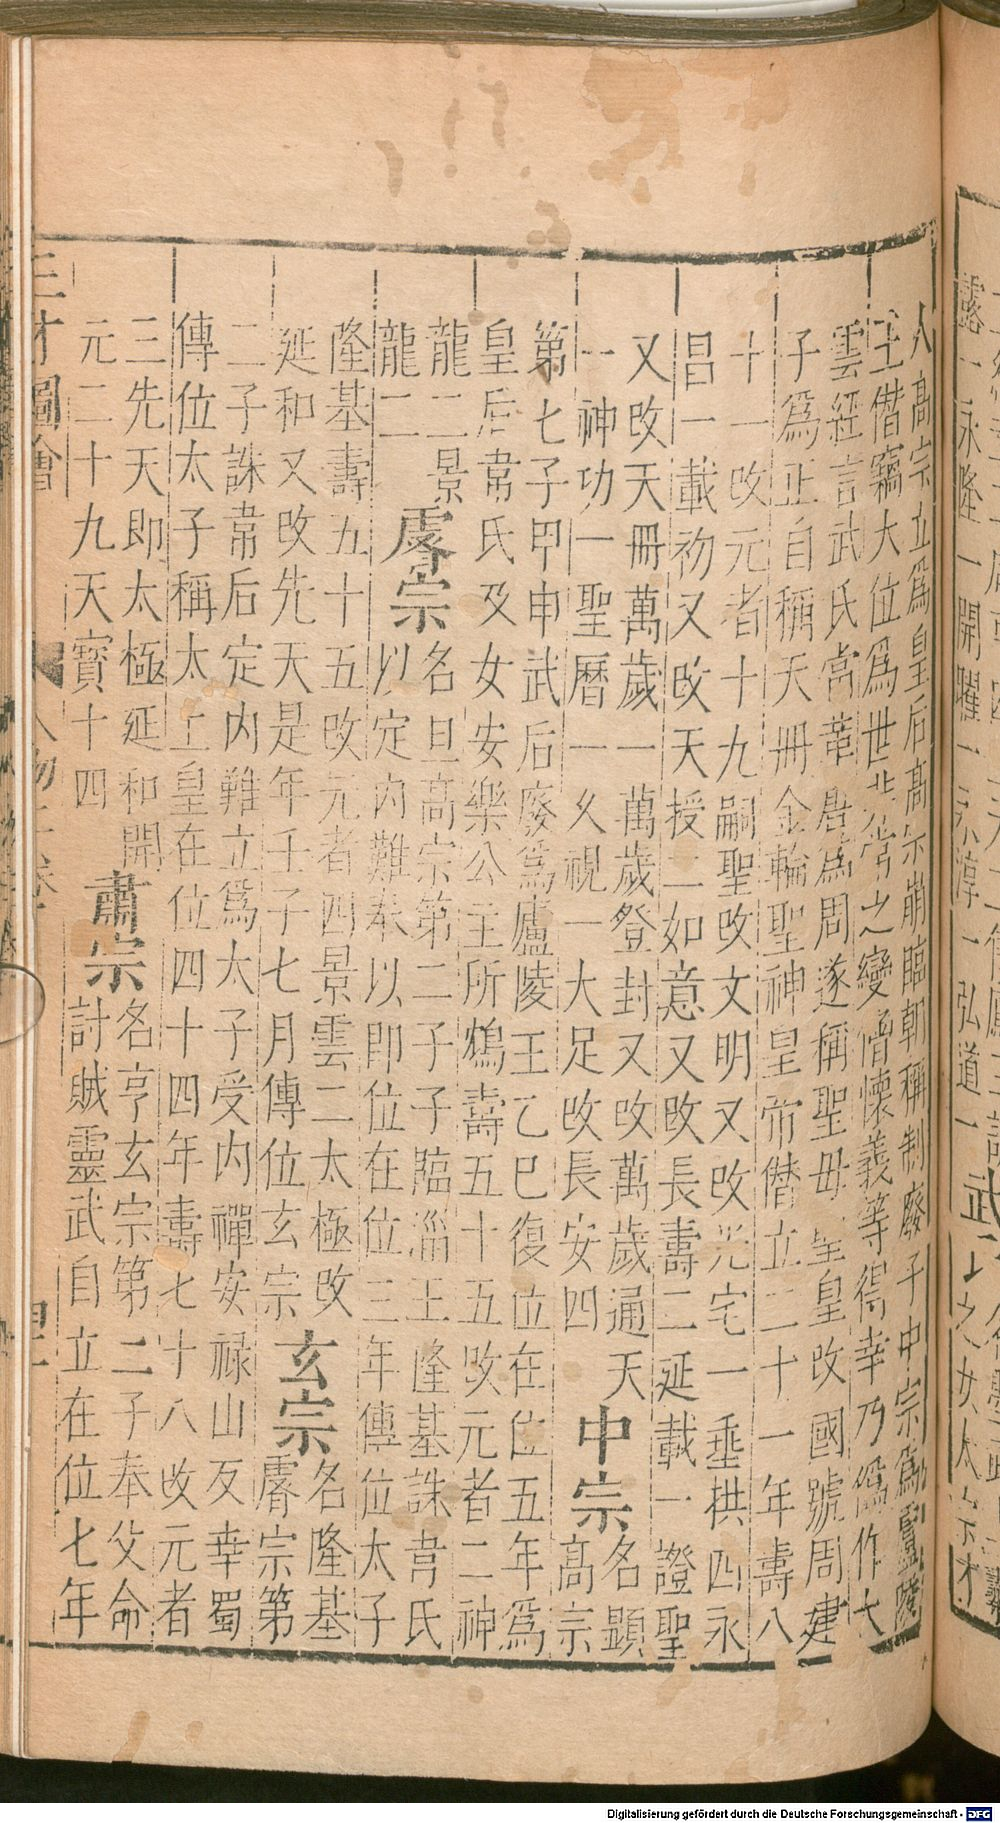 露一永隆一開耀一永淳一弘道一
人高宗立爲皇后高宗崩臨朝稱制廢子中宗爲廬陵
王僣竊大位爲世非常之變僧懷義等得幸乃僞作大
雲經言武氏當革唐爲周遂稱聖毋聖皇改國號周建
子爲正自稱天冊金輪聖神皇帝僣立二十一年壽八
十一改元者十九嗣聖改文明又改光宅一垂拱四永
昌一載初又改天授二如意又改長壽二延載一證聖
又改天冊萬歲一萬歲登封又改萬歲通天
一神功一聖曆一久視一大足改長安四
中宗
名顯
高宗
第七子甲申武后廢爲廬陵王乙巳復位在位五年爲
皇后韋氏及女安樂公主所鴆壽五十五改元者二神
龍二景
龍二
睿宗
名旦高宗第二子子臨淄王隆基誅韋氏
以定内難奉以即位在位三年傳位太子
隆基壽五十五改元者四景雲二太極改
延和又改先天是年壬子七月傳位玄宗
玄宗
名隆基
睿宗第
二子誅韋后定内難立爲太子受内禪安禄山反幸蜀
傳位太子稱太上皇在位四十四年壽七十八改元者
三先天即太極延和開
元二十九天寶十四
肅宗
名亨玄宗第二子奉父命
討賊靈武自立在位七年
三才圖會 人物 卷
Digitalisierung gefördert durch die Deutsche Forschungsgemeinschaft - DFG